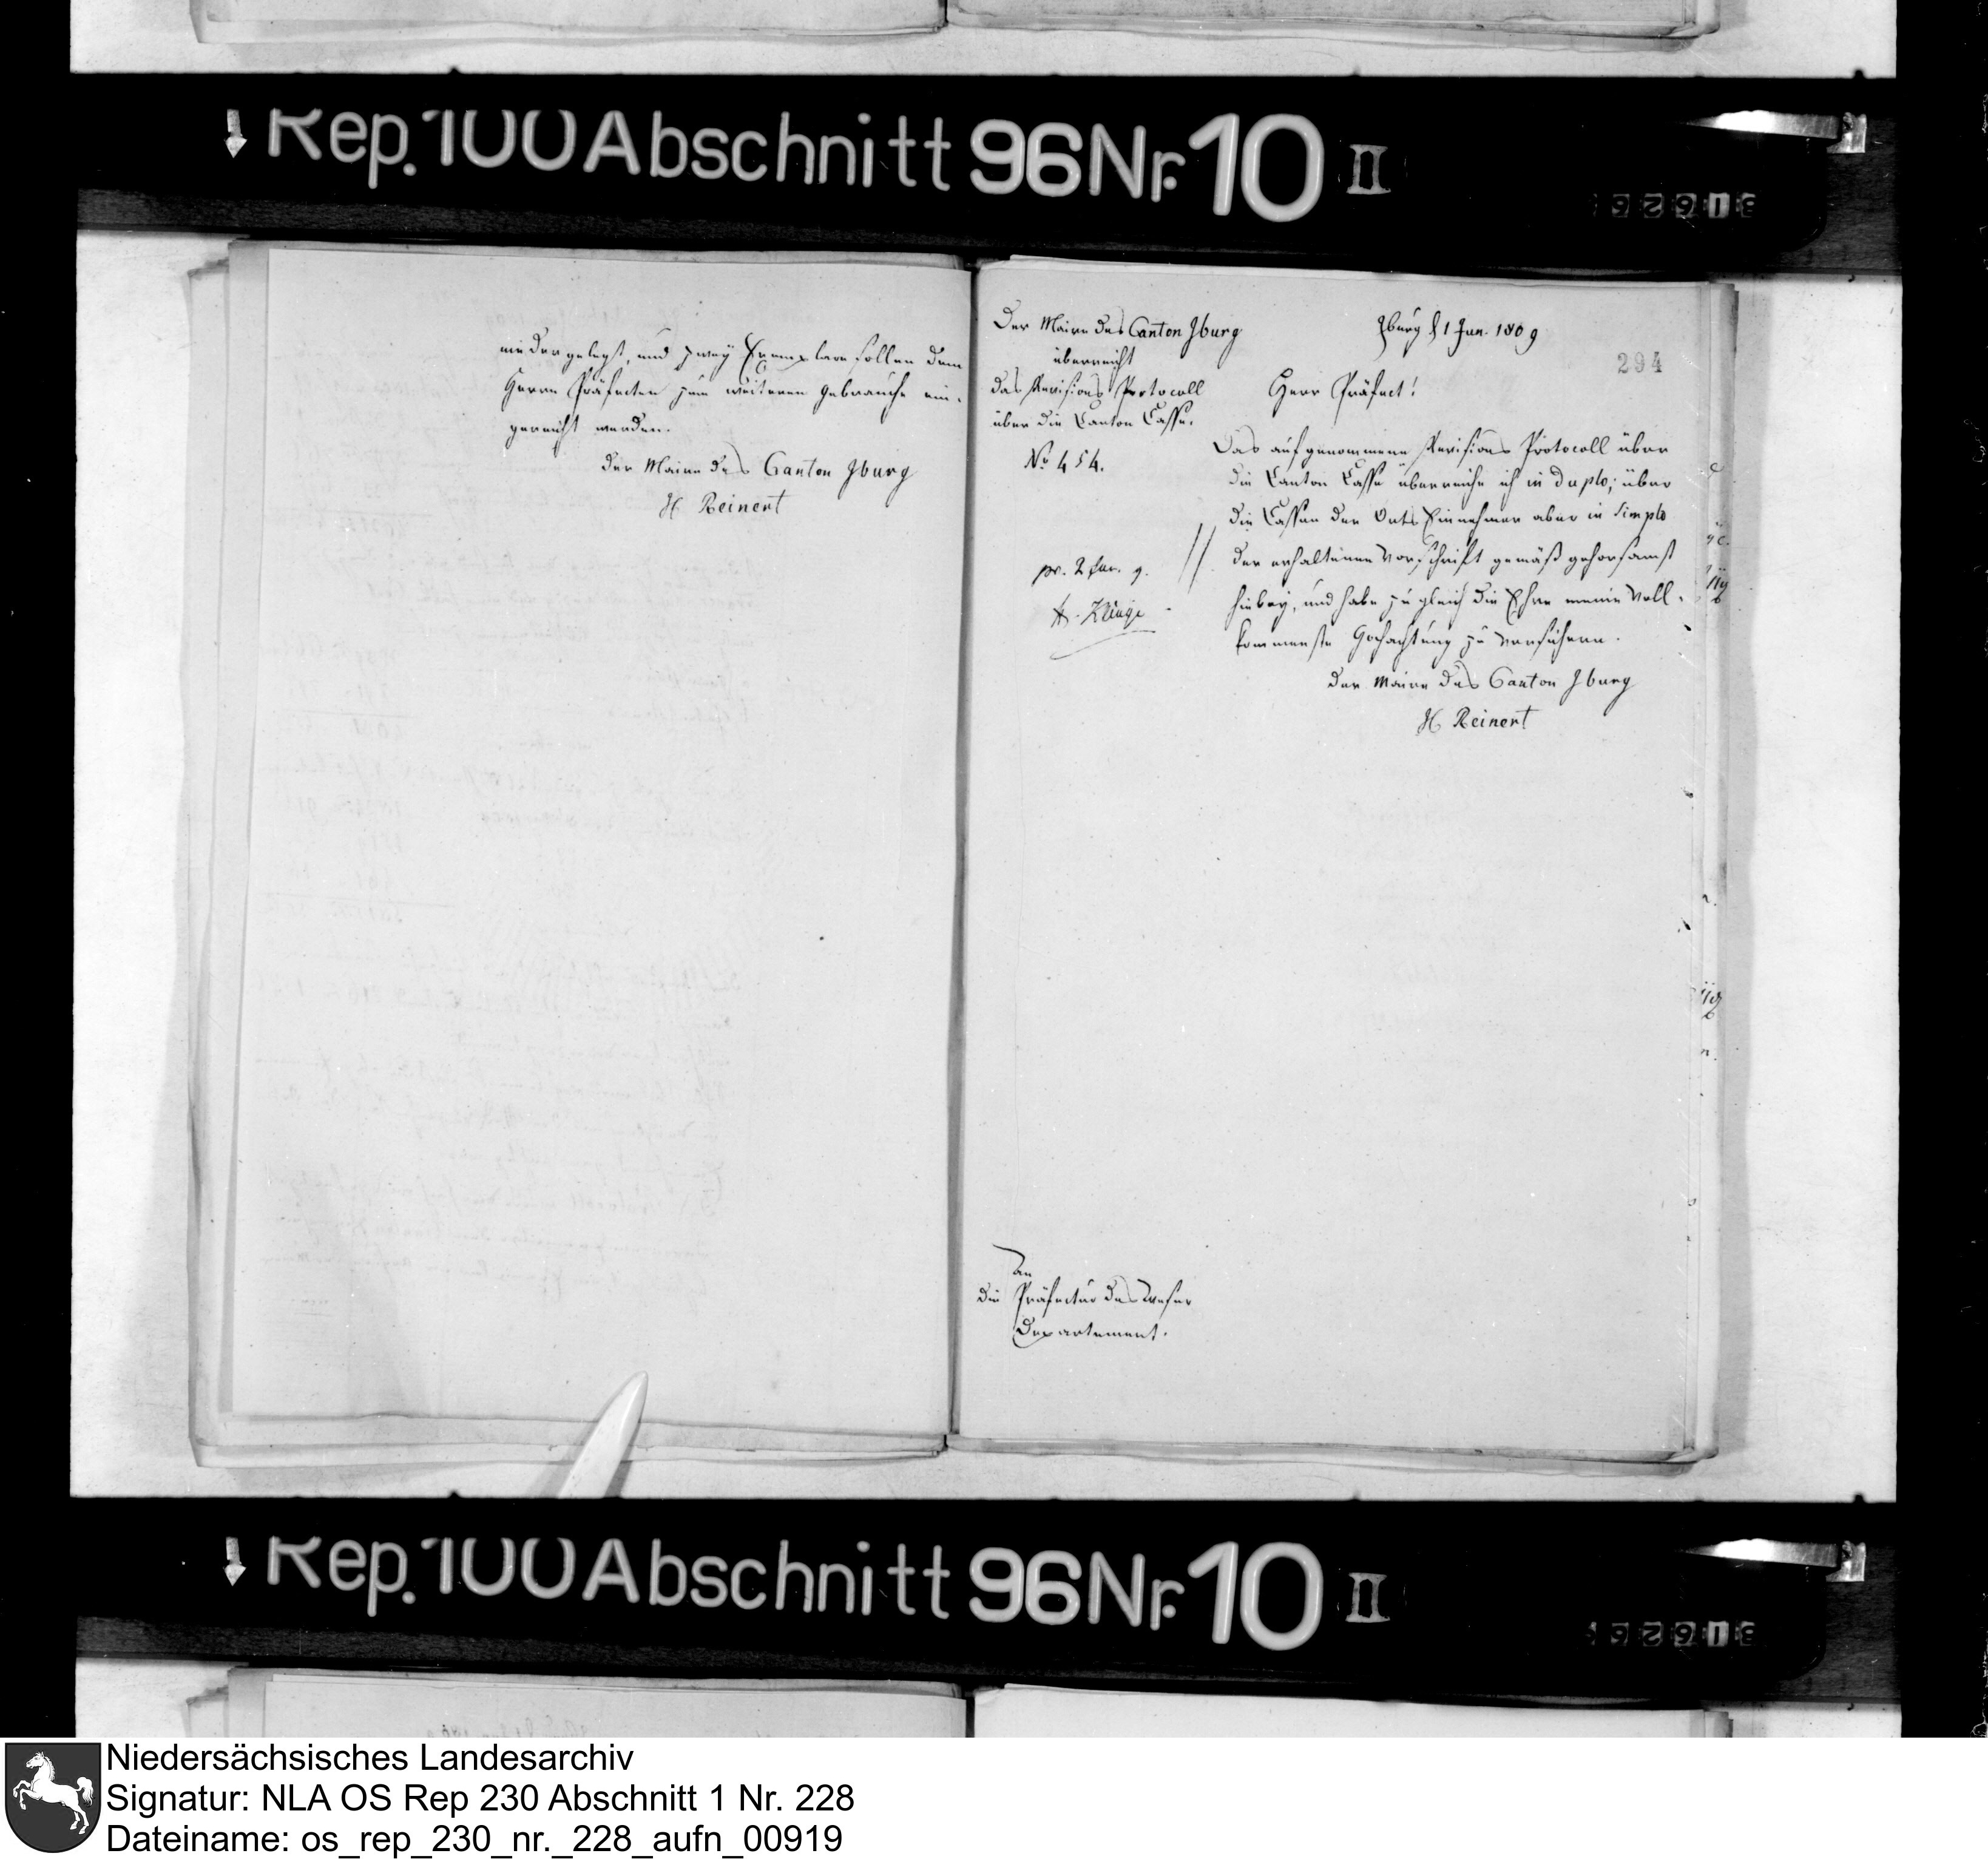 Rep. 100 Abschnitt 96 Nr. 10 II
niedergelegt, und zwey Exemplare sollen dem
Herrn Präfecten zum weiteren Gebrauche ein-
gereicht werden.
Der Maire des Canton Iburg
H Reinert
Der Maire des Canton Iburg
überreicht
das Revisions Protocoll
über die Canton Casse.
No 454.
pr. 2 Jun. 9.
Iburg d 1 Jun. 1809
294
Herr Präfect!
Das aufgenommene Revisions Protocoll über
die Canton Casse überreiche ich in duplo; über
die Cassen der Orts Einnehmer aber in Simplo
der erhaltenen Vorschrift gemäß gehorsamst
hiebey, und habe zugleich die Ehre meine Voll-
kommenste Hochachtung zu versichern.
Der Maire des Canton Iburg
H Reinert
An
die Präfectur des Weser
Departement.
Rep. 100 Abschnitt 96 Nr. 10 II
Niedersächsisches Landesarchiv
Signatur: NLA OS Rep 230 Abschnitt 1 Nr. 228
Dateiname: os_rep_230_nr._228_aufn_00919